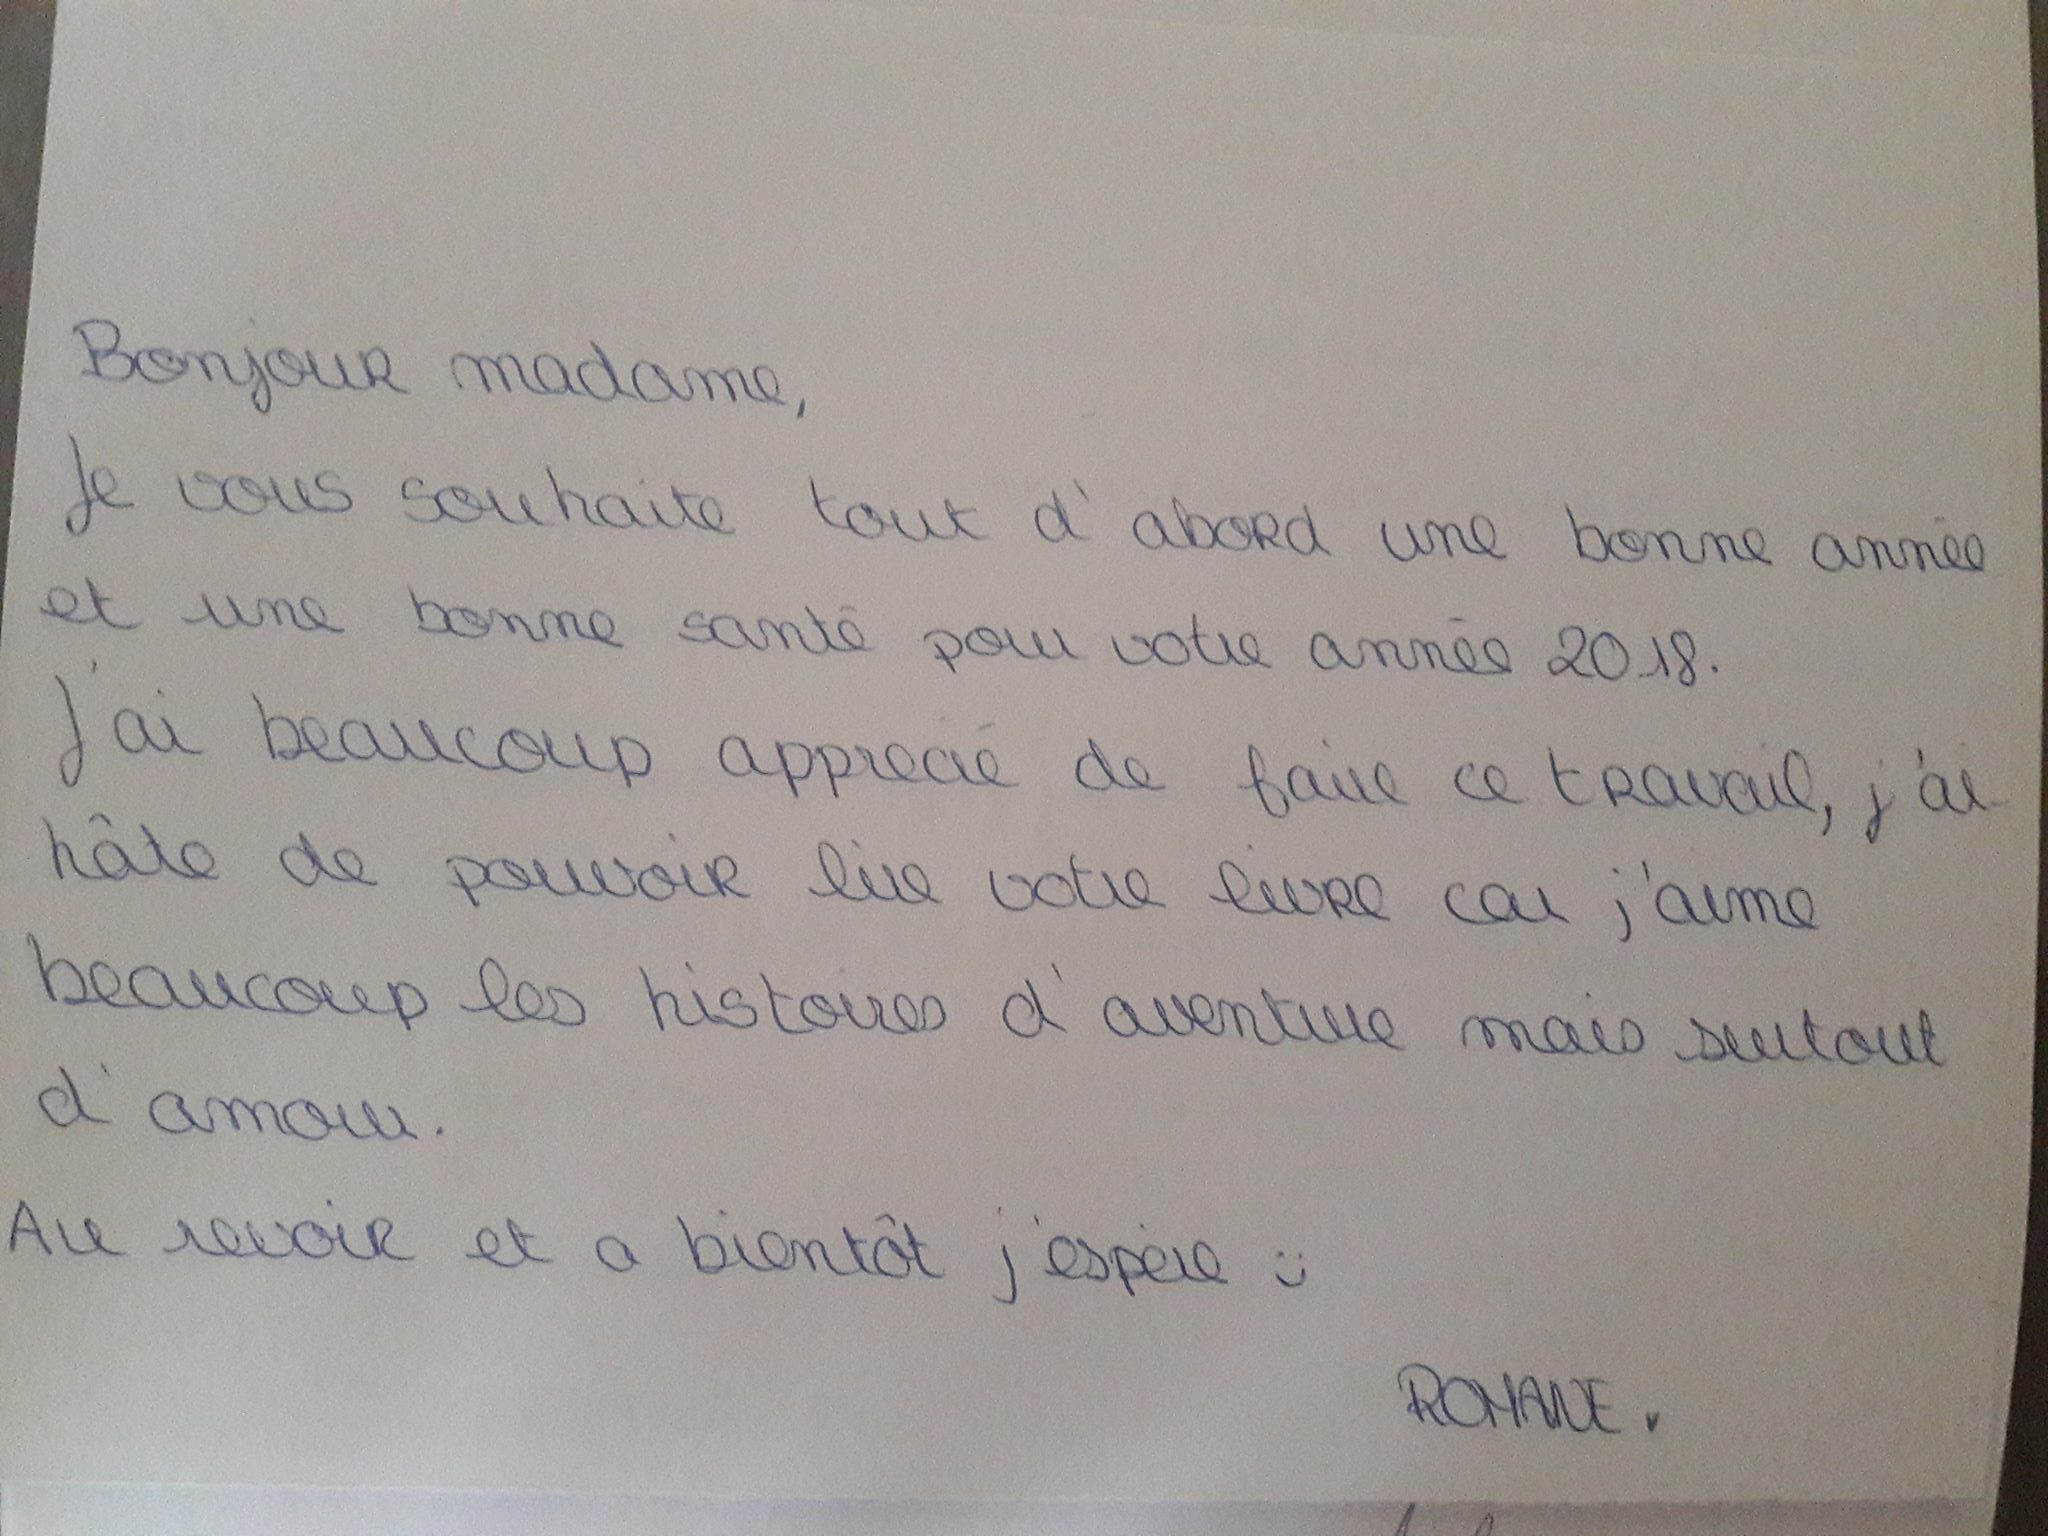 Bonjour madame,
Je vous souhaite tout d'abord une bonne année
et une bonne santé pour votre année 2018.
J'ai beaucoup apprecié de faire ce travail, j'ai
hâte de pouvoir lire votre livre car j'aime
beaucoup les histoires d'aventure mais surtout
d'amour.
Au revoir et a bientôt j'espère :)
ROMANE.